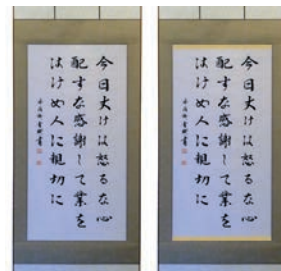 今日丈けは怒るな心
配すな感謝して業を
はけめ人に親切に
今日丈けは怒るな心
配すな感謝して業を
はけめ人に親切に